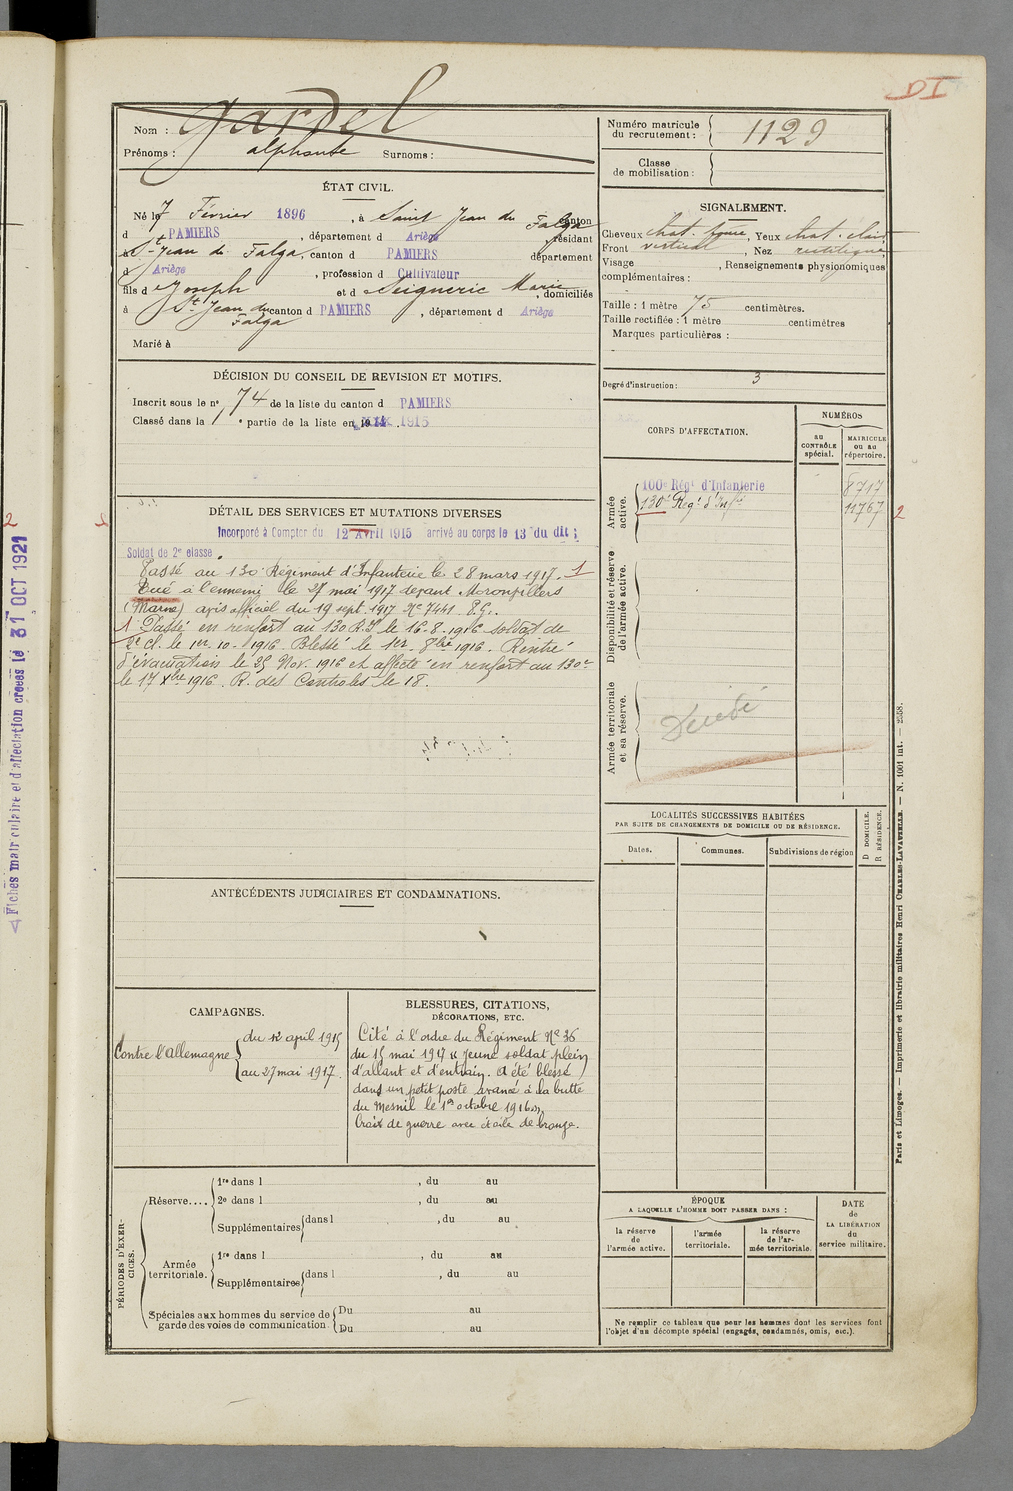 DI
Nom : Gardel
Prénoms : alphonse Surnoms :
Numéro matricule
du recrutement : 1129
Classe
de mobilisation :
ÉTAT CIVIL.
Né le 7 Février 1896, à Saint Jean du Falga canton
d PAMIERS, département d Ariège, résidant
à St-Jean du Falga, canton d PAMIERS département
d Ariège, profession d Cultivateur
fils d Joseph et d Seigneric Marie, domiciliés
à St Jean du Falga canton d PAMIERS, département d Ariège
Marié à
SIGNALEMENT.
Cheveux chat. foncé, Yeux chat. clair
Front vertical, Nez rectiligne
Visage , Renseignements physionomiques
complémentaires :
Taille : 1 mètre 75 centimètres.
Taille rectifiée : 1 mètre centimètres
Marques particulières :
Degré d'instruction : 3
DÉCISION DU CONSEIL DE REVISION ET MOTIFS.
Inscrit sous le n° 74 de la liste du canton d PAMIERS
Classé dans la 1 e partie de la liste en 1915
DÉTAIL DES SERVICES ET MUTATIONS DIVERSES
Incorporé à Compter du 12 Avril 1915 arrivé au corps le 13 du dit ;
Soldat de 2e classe.
Passé au 130e Régiment d'Infanterie le 28 mars 1917. 1
Tué à l'ennemi le 27 mai 1917 devant Moronvillers
(Marne) avis officiel du 19 sept. 1917 Nº 7441 P.G.
1 Passé en renfort au 130 R.I. le 16-8-1916 soldat de
2e cl. le 1er-10-1916. Blessé le 1er 8bre 1916. Rentré
d'évacuation le 25 Nov. 1916 et affecté en renfort au 130e
le 17 Xbre 1916. R. des Controles le 18.
CORPS D'AFFECTATION.
NUMÉROS
au
CONTRÔLE
spécial.
MATRICULE
ou au
répertoire.
Armée
active.
100e Régt d'Infanterie 8717
130e Regt d'Infie 11767
2
Disponibilité et réserve
de l'armée active.
Armée territoriale
et sa réserve.
Décédé
LOCALITÉS SUCCESSIVES HABITÉES
PAR SUITE DE CHANGEMENTS DE DOMICILE OU DE RÉSIDENCE.
Dates.
Communes.
Subdivisions de région
D DOMICILE.
R RÉSIDENCE.
ANTÉCÉDENTS JUDICIAIRES ET CONDAMNATIONS.
CAMPAGNES.
Contre l'Allemagne
du 12 april 1915
au 27 mai 1917.
BLESSURES, CITATIONS,
DÉCORATIONS, ETC.
Cité à l'ordre du Régiment Nº 36
du 15 mai 1917 « Jeune soldat plein
d'allant et d'entrain. A été blessé
dans un petit poste avancé à la butte
du Mesnil le 1er octobre 1916 ».
Croix de guerre avec étoile de bronze.
PÉRIODES D'EXERCICES.
Réserve....
1re dans l , du au
2e dans l , du au
Supplémentaires dans l , du au
Armée
territoriale.
1re dans l , du au
Supplémentaires dans l , du au
Spéciales aux hommes du service de
garde des voies de communication.
Du au
Du au
ÉPOQUE
A LAQUELLE L'HOMME DOIT PASSER DANS :
la réserve
de
l'armée active.
l'armée
territoriale.
la réserve
de l'ar-
mée territoriale.
DATE
de
LA LIBÉRATION
du
service militaire.
Ne remplir ce tableau que pour les hommes dont les services font
l'objet d'un décompte spécial (engagés, condamnés, omis, etc.).
Paris et Limoges. — Imprimerie et librairie militaires Henri CHARLES-LAVAUZELLE. — N. 1001 int. — 2558.
Fiches matriculaire et d'affectation créées le 31 OCT 1921
2